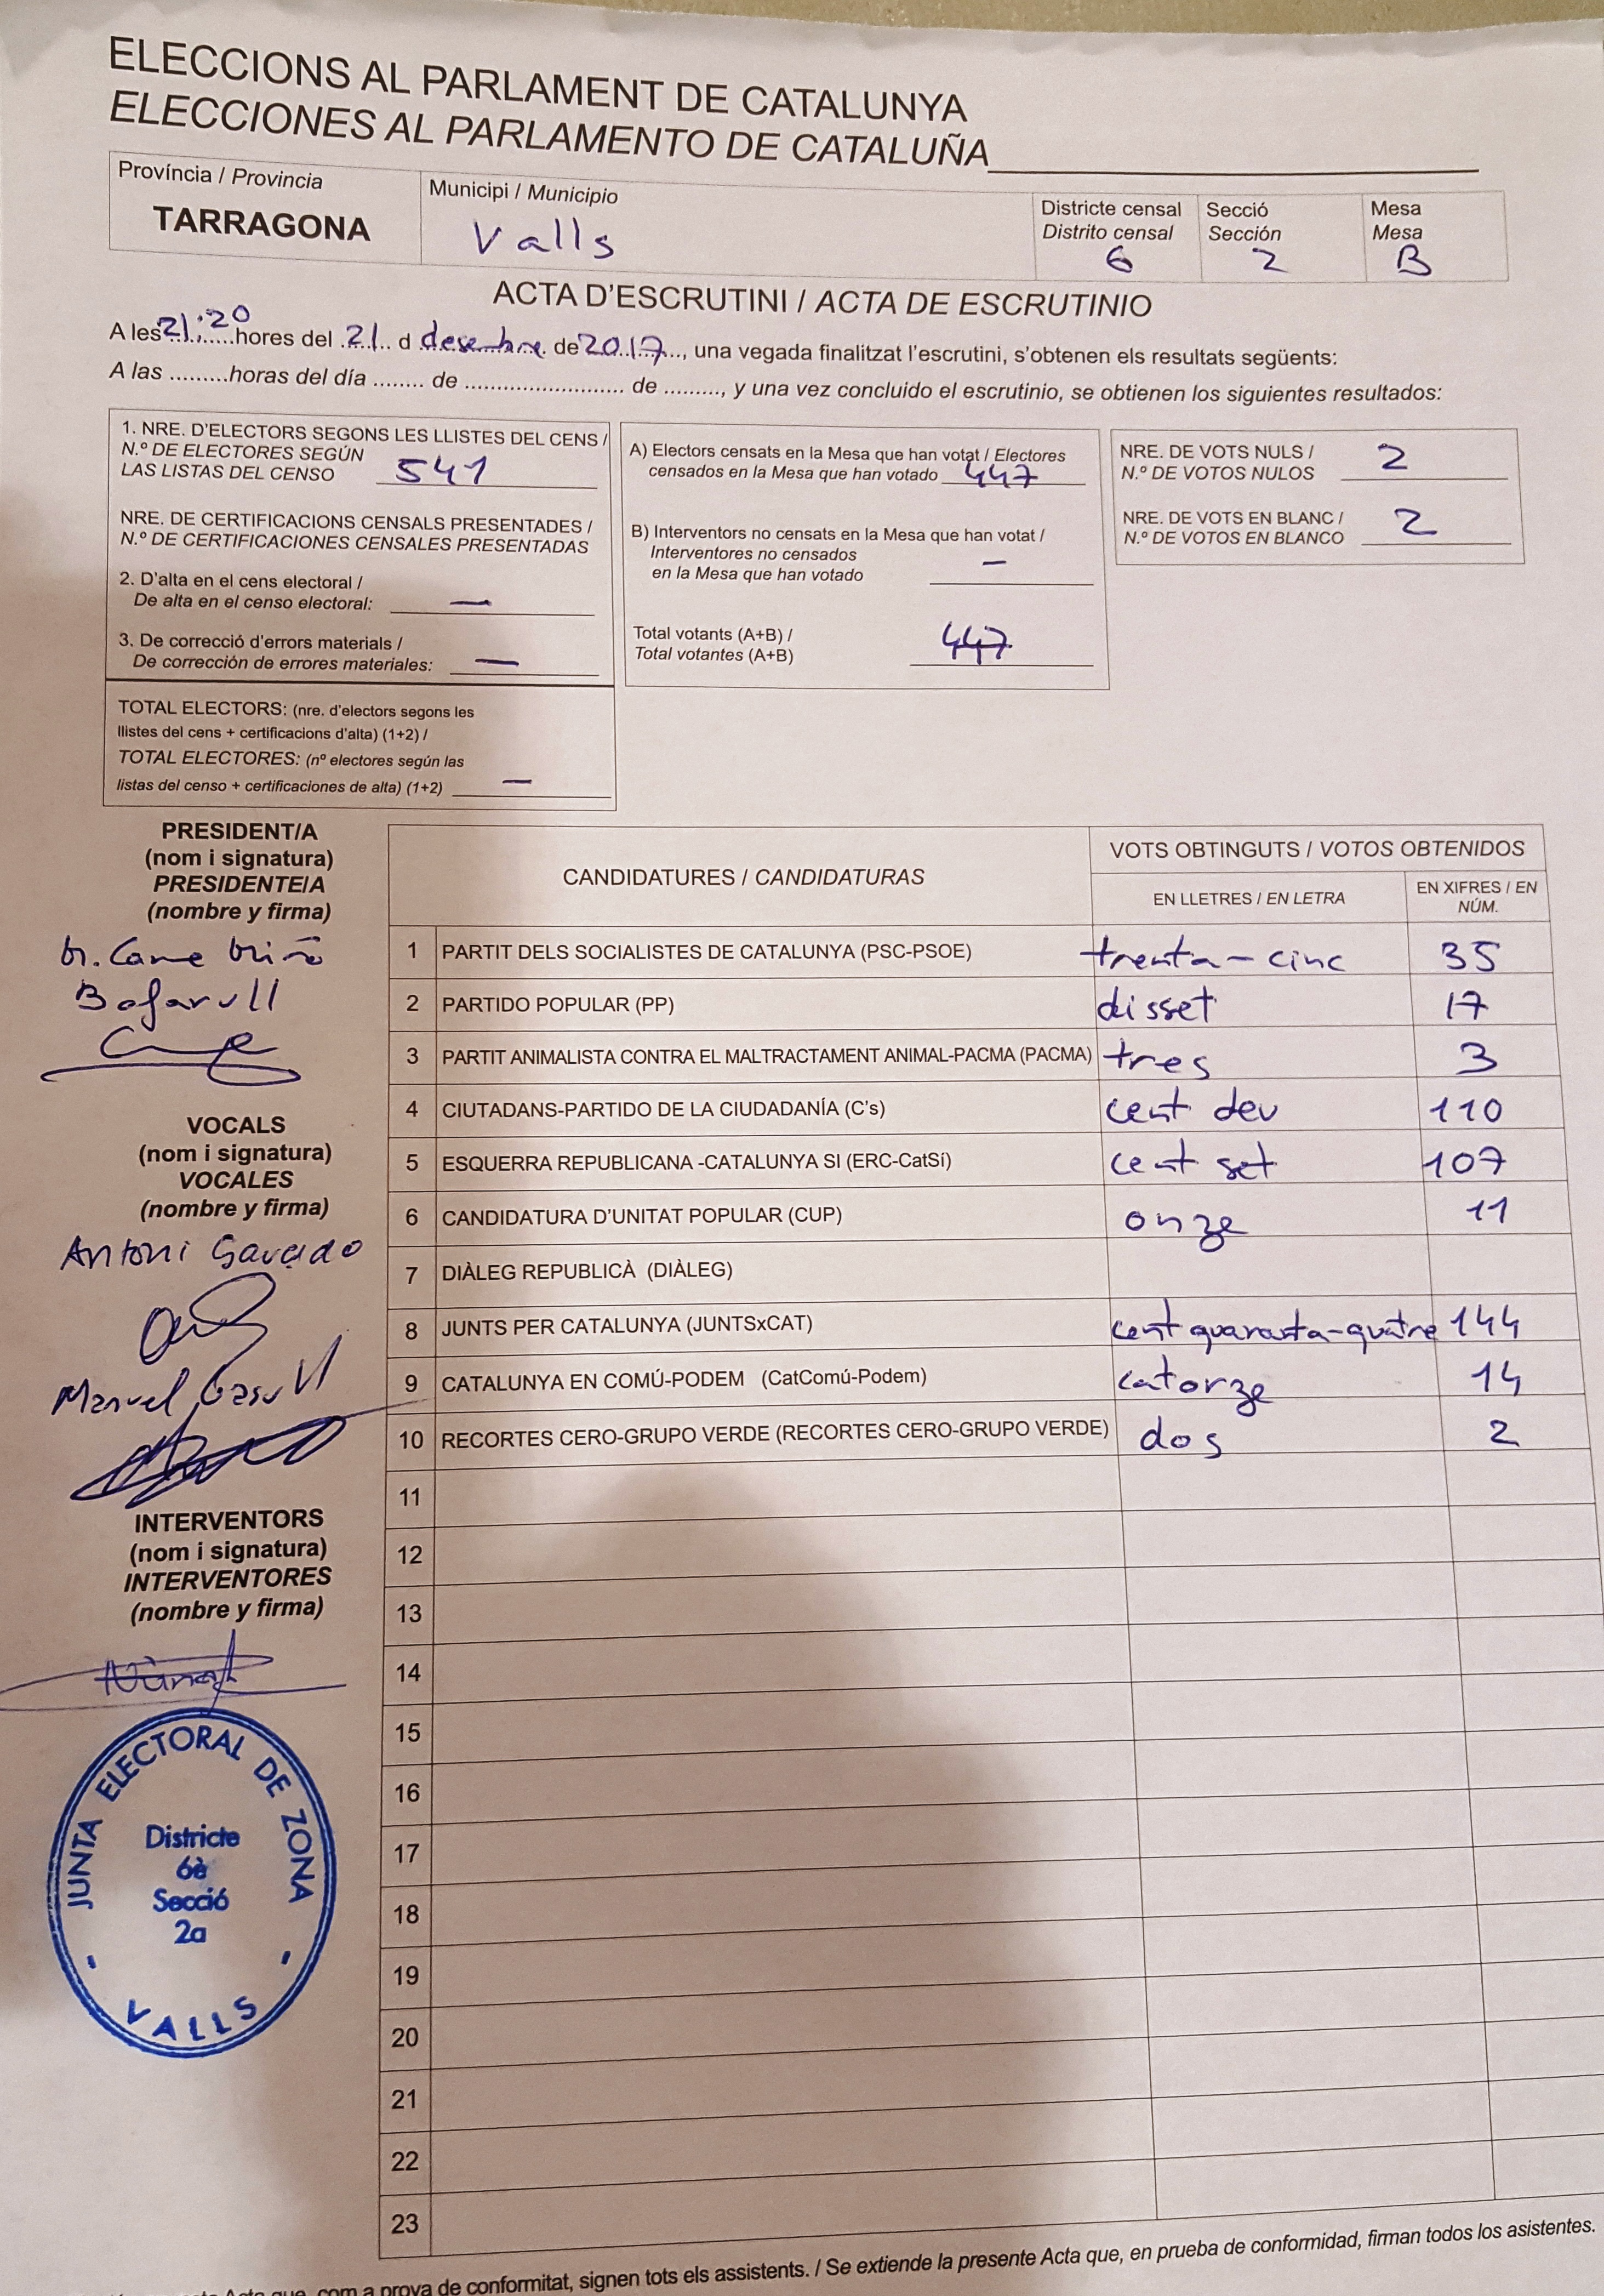 ELECCIONS AL PARLAMENT DE CATALUNYA
ELECCIONES AL PARLAMENTO DE CATALUÑA
Província / Provincia
TARRAGONA
Municipi / Municipio
Valls
Districte censal
Distrito censal
6
Secció
Sección
2
Mesa
Mesa
B
ACTA D'ESCRUTINI / ACTA DE ESCRUTINIO
A les 21:20 hores del 21 d desembre de 2017, una vegada finalitzat l'escrutini, s'obtenen els resultats següents:
A las .........horas del día ........ de .......................... de ........., y una vez concluido el escrutinio, se obtienen los siguientes resultados:
1. NRE. D'ELECTORS SEGONS LES LLISTES DEL CENS /
N.º DE ELECTORES SEGÚN
LAS LISTAS DEL CENSO 541
NRE. DE CERTIFICACIONS CENSALS PRESENTADES /
N.º DE CERTIFICACIONES CENSALES PRESENTADAS
2. D'alta en el cens electoral /
De alta en el censo electoral: —
3. De correcció d'errors materials /
De corrección de errores materiales: —
TOTAL ELECTORS: (nre. d'electors segons les
llistes del cens + certificacions d'alta) (1+2) /
TOTAL ELECTORES: (nº electores según las
listas del censo + certificaciones de alta) (1+2) —
A) Electors censats en la Mesa que han votat / Electores
censados en la Mesa que han votado 447
B) Interventors no censats en la Mesa que han votat /
Interventores no censados
en la Mesa que han votado —
Total votants (A+B) /
Total votantes (A+B) 447
NRE. DE VOTS NULS /
N.º DE VOTOS NULOS 2
NRE. DE VOTS EN BLANC /
N.º DE VOTOS EN BLANCO 2
PRESIDENT/A
(nom i signatura)
PRESIDENTE/A
(nombre y firma)
M. Carme Miró
Bofarull
VOCALS
(nom i signatura)
VOCALES
(nombre y firma)
Antoni
Manuel Gasull
INTERVENTORS
(nom i signatura)
INTERVENTORES
(nombre y firma)
JUNTA ELECTORAL DE ZONA
Districte
6è
Secció
2a
- VALLS -
CANDIDATURES / CANDIDATURAS
VOTS OBTINGUTS / VOTOS OBTENIDOS
EN LLETRES / EN LETRA
EN XIFRES / EN
NÚM.
1 PARTIT DELS SOCIALISTES DE CATALUNYA (PSC-PSOE) trenta-cinc 35
2 PARTIDO POPULAR (PP) disset 17
3 PARTIT ANIMALISTA CONTRA EL MALTRACTAMENT ANIMAL-PACMA (PACMA) tres 3
4 CIUTADANS-PARTIDO DE LA CIUDADANÍA (C's) cent deu 110
5 ESQUERRA REPUBLICANA -CATALUNYA SI (ERC-CatSí) cent set 107
6 CANDIDATURA D'UNITAT POPULAR (CUP) onze 11
7 DIÀLEG REPUBLICÀ (DIÀLEG)
8 JUNTS PER CATALUNYA (JUNTSxCAT) cent quaranta-quatre 144
9 CATALUNYA EN COMÚ-PODEM (CatComú-Podem) catorze 14
10 RECORTES CERO-GRUPO VERDE (RECORTES CERO-GRUPO VERDE) dos 2
11
12
13
14
15
16
17
18
19
20
21
22
23
com a prova de conformitat, signen tots els assistents. / Se extiende la presente Acta que, en prueba de conformidad, firman todos los asistentes.